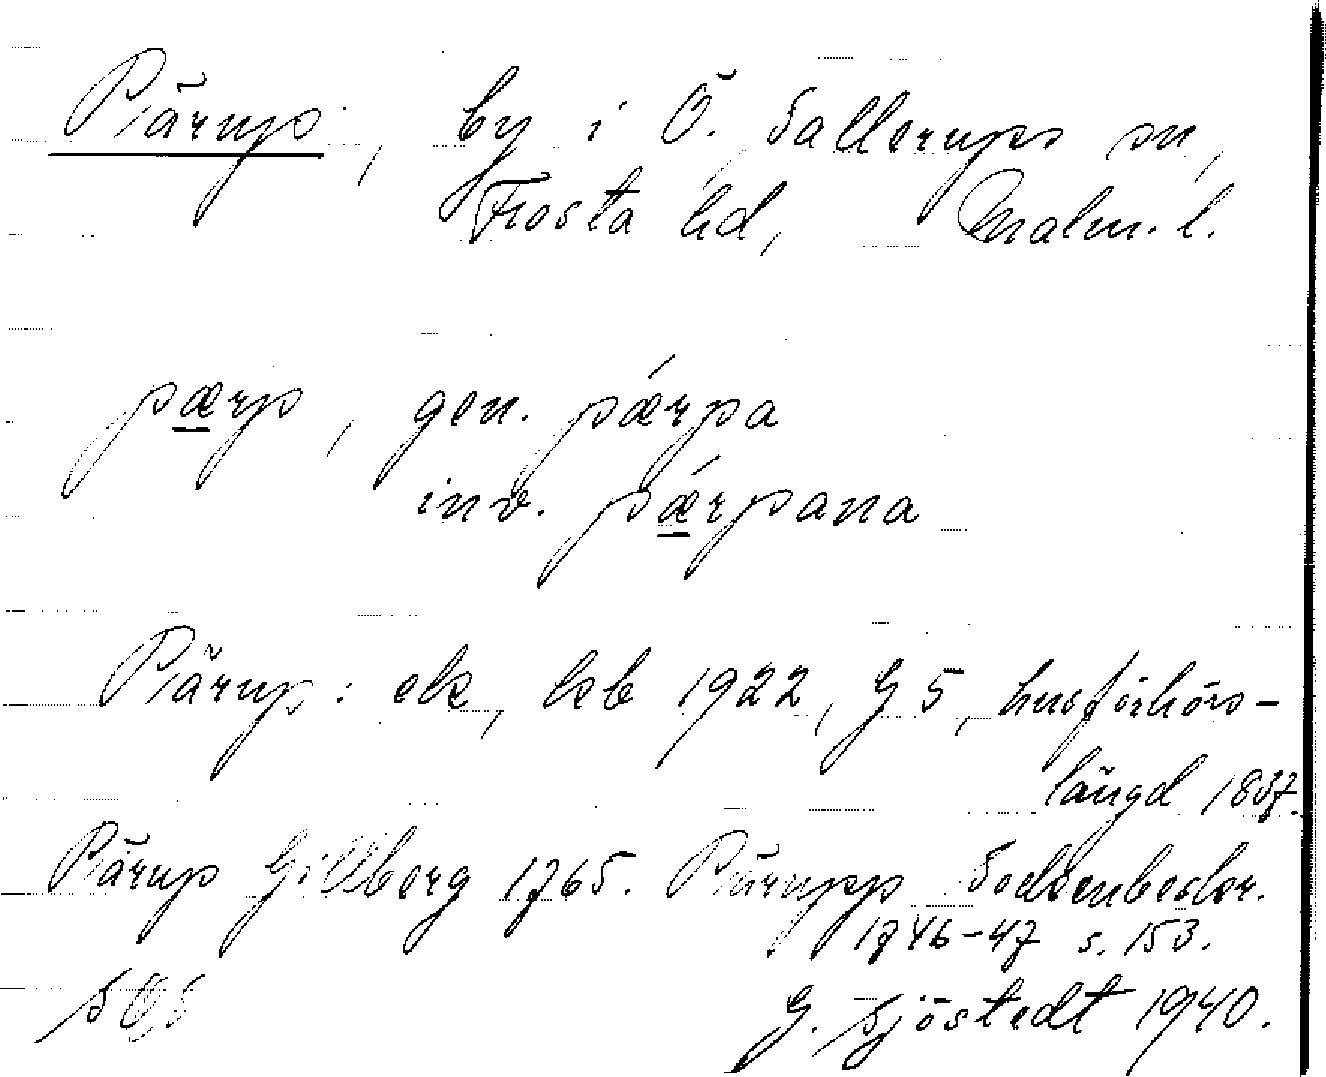 Pärup, by i Ö. Sallerups sn,
Frosta hd, Malm. l.
pærp, gen. pǽrpa
inv. pǽrpana
Pärup: ek, ksb 1922, G 5, husförhörs-
längd 1837.
Pärup Gillberg 1765. Pärupp Sockenbeskr.
1746-47 s. 153.
G. Sjöstedt 1940.